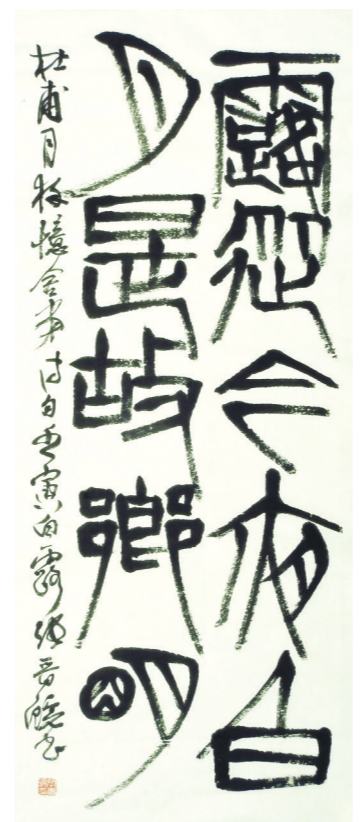 露從今夜白
月是故鄉明
杜甫月夜憶舍弟诗句壬寅白露张晋书